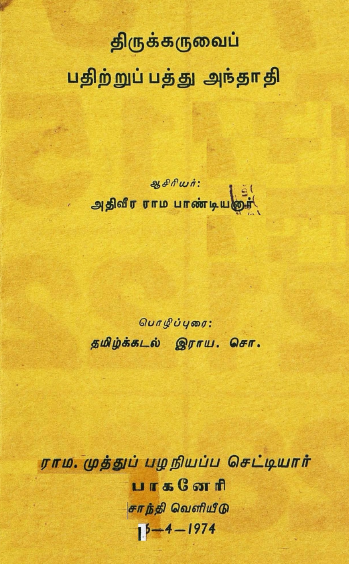 திருக்கருவைப்
பதிற்றுப் பத்து அந்தாதி
ஆசிரியர்:
அதிவீர ராம பாண்டியனார்
பொழிப்புரை:
தமிழ்க்கடல் இராய. சொ.
ராம. முத்துப் பழநியப்ப செட்டியார்
பாகனேரி
சாந்தி வெளியீடு
16-4-1974